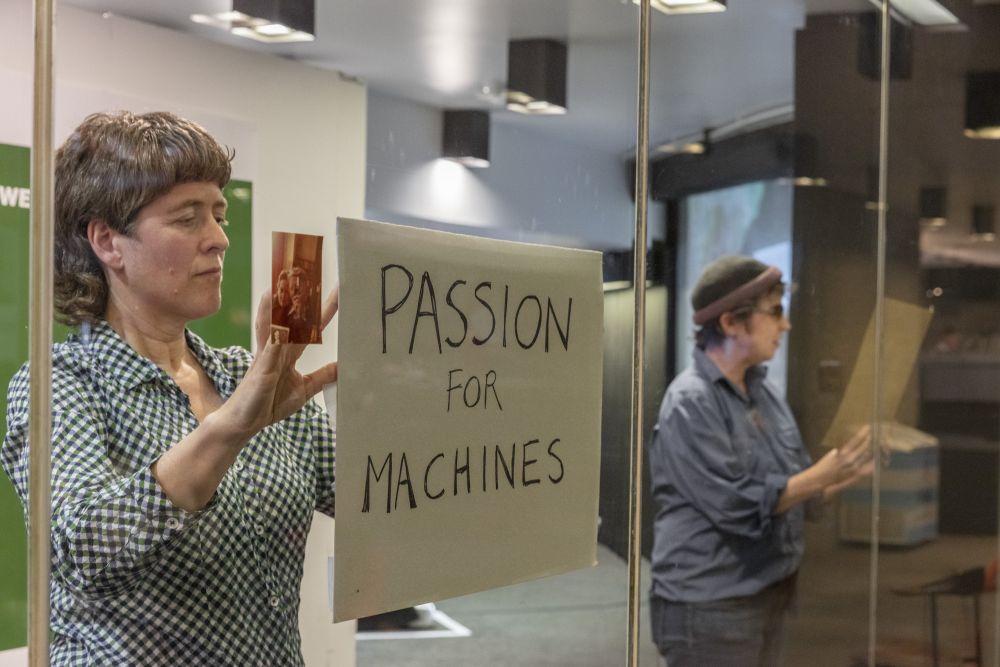 WE
PASSION
FOR
MACHINES